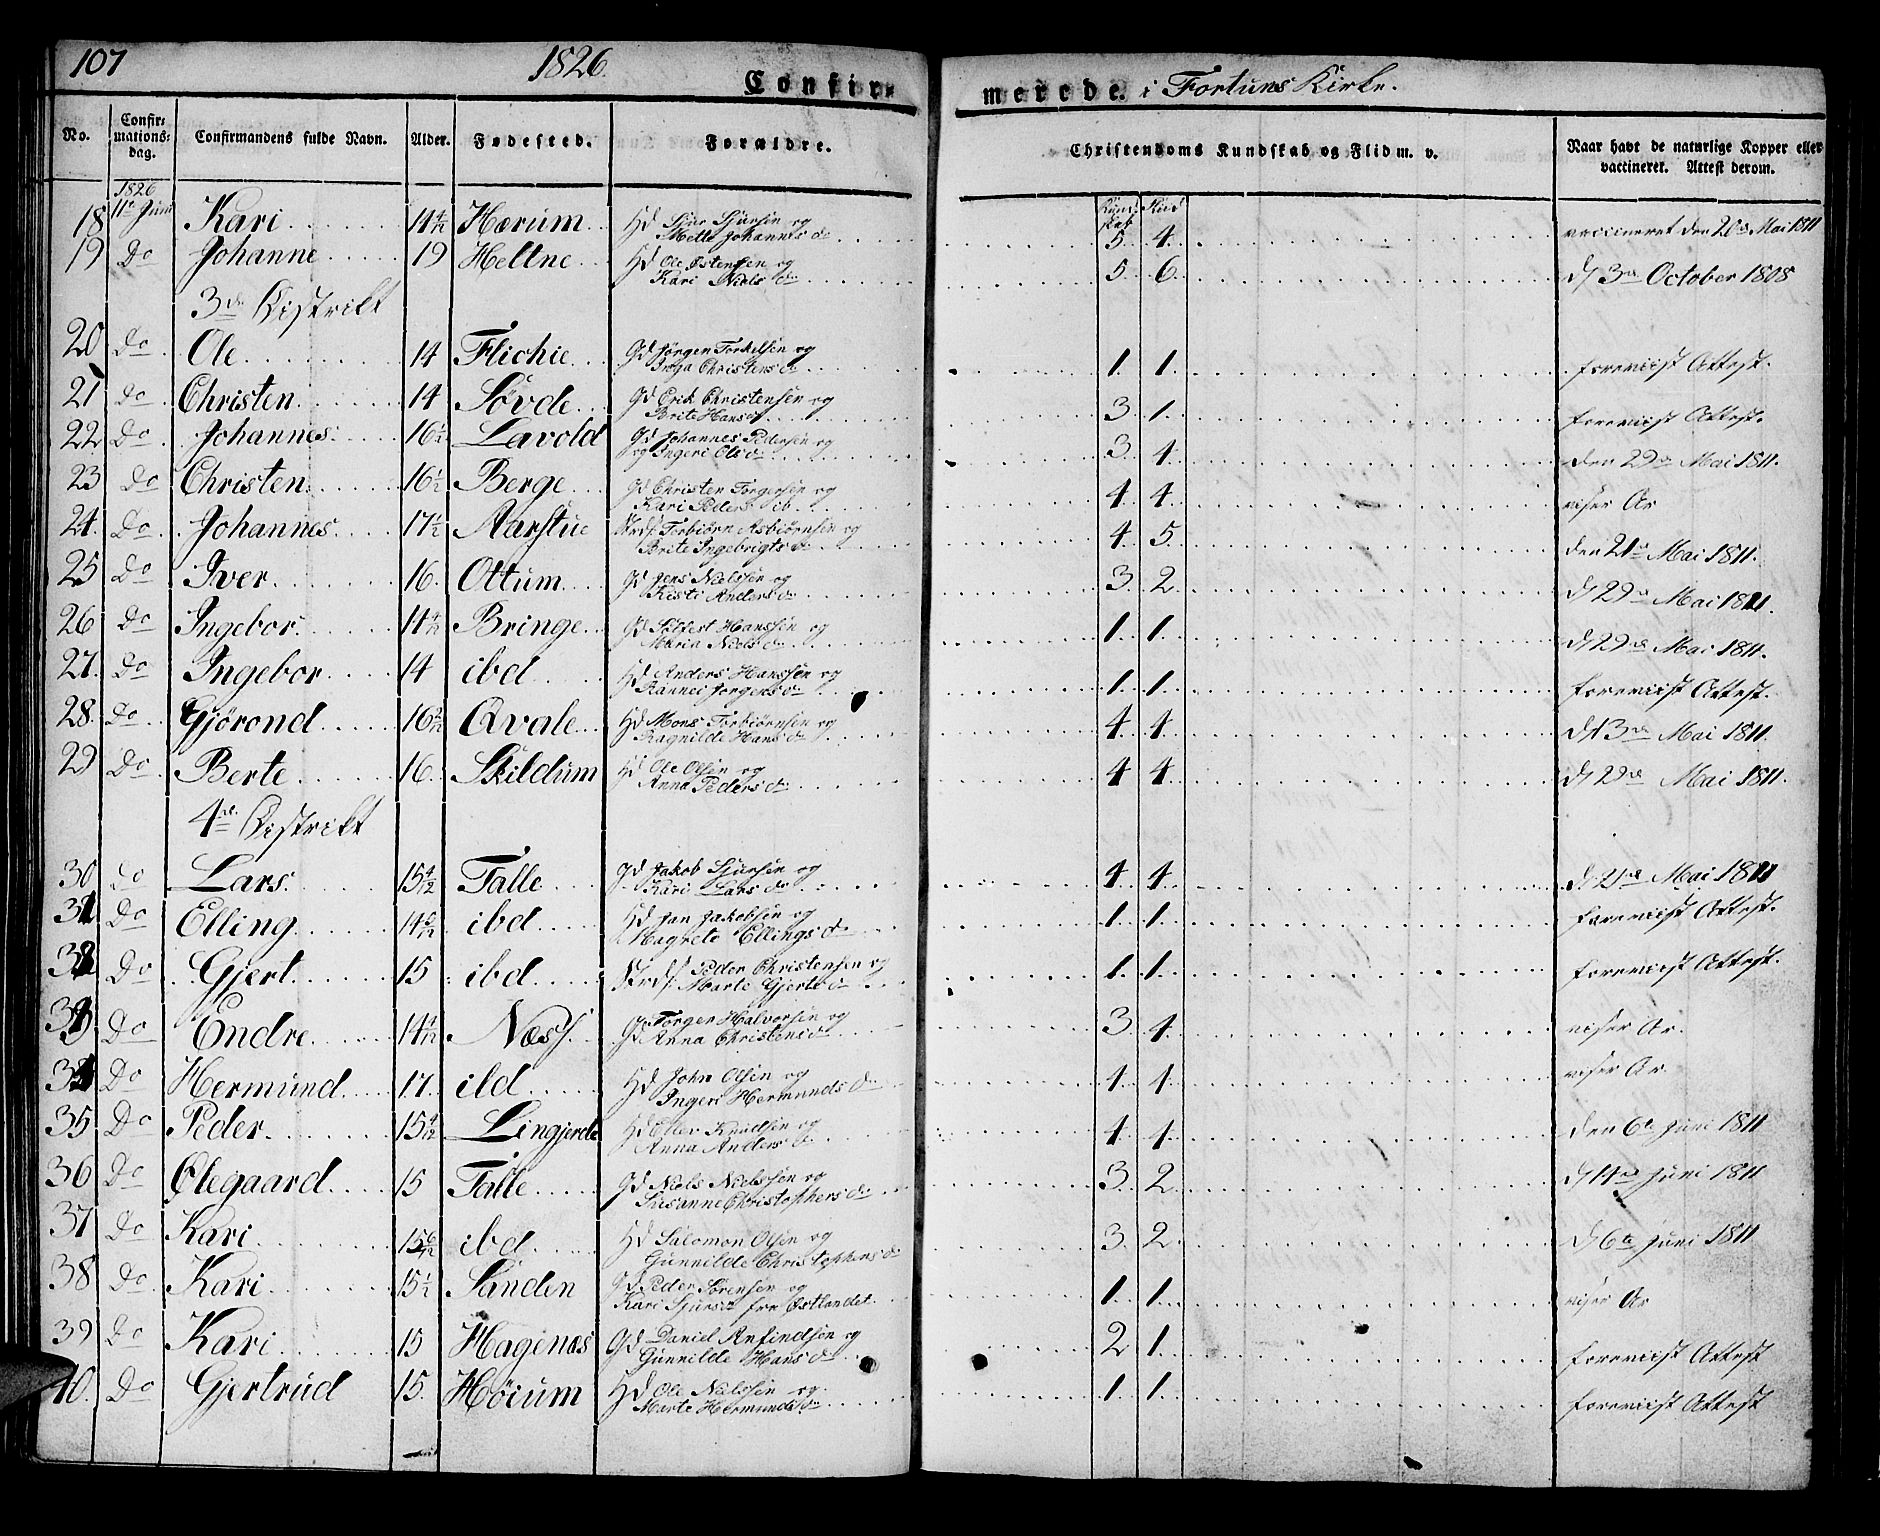 107 1826. Confir- merede. i Fortuns Kirke.
No. Confirmations-dag. Confirmandens fulde Navn. Alder. Fødested. Forældre. Christendoms Kundskab og Flid m. v. Naar havt de naturlige Kopper eller vaccineret. Attest derom.
1826
18 11te Juni Kari 14 4/12 Hærum Hd Sjur Sjursen og Mette Johannes dr 5. 4. vaccineret den 20de Mai 1811
19 Do Johanne 19 Heltne Hd Ole Østensen og Kari Niels dr 5. 6. d/ 3de October 1808
3de Distrikt
20 Do Ole 14 Flichie Gd Jørgen Torkelsen og Inga Christens dr 1. 1. foreviist Attest.
21 Do Christen 14 Søvde Gd Erik Christensen og Brite Hans dr 3. 1. foreviist Attest.
22 Do Johannes 16 1/2 Lavold Gd Johannes Pedersen og og Ingeri Ols dr 3. 4. den 29de Mai 1811.
23 Do Christen 16 1/2 Berge Gd Christen Torgersen og Kari Peders ib. 4. 4. viser Ar
24. Do Johannes 17 1/2 Aarstue Strds. Torbiørn Asbiørnsen og Brite Ingebrigts dr 4. 5. den 21de Mai 1811.
25 Do Iver 16. Ottum Gd Jens Nielssen og Kisti Anders dr 3. 2. d/ 29de Mai 1811.
26 Do Ingebor. 14 4/12 Bringe Gd Silfest Hanssen og Maria Niels dr 1. 1. d/ 29de Mai 1811.
27. Do Ingebor 14 ibd Hd Anders Hanssen og Rannei Jørgens dr 1. 1. foreviist Attest.
28. Do Gjørond 16 2/12 Qvale Hd Mons Torbiørnsen og Ragnilde Hans dr 4. 4. d/ 13de Mai 1811.
29 Do Berte 16. Skildum Hd Ole Olsen og Anna Peders dr 4. 4. d/ 29de Mai 1811.
4de Distrikt
30 Do Lars. 15 4/12 Talle Gd Jakob Sjursen og Kari Lars dr 4. 4. d/ 21de Mai 1811
31 Do Elling 14 ibd Hd Jan Jakobsen og Magrete Ellings dr 1. 1. foreviist Attest.
32 Do Gjert 15 ibd Strds. Peder Christensen og Marte Gjerts dr 1. 1. foreviist Attest.
33 Do Endre 14 4/12 Næss. Gd Torger Halvorsen og Anna Christens dr 3. 4. viser Ar.
34 Do Hermund 17. ibd Hd John Olsen og Ingeri Hermunds dr 4. 4. viser Ar.
35 Do Peder 15 4/12 Lingjerde Hd Eller Knudsen og Anna Anders dr 4. 4. den 6te Juni 1811
36 Do Olegaard 15 Talle Gd Niels Nielssen og Susanne Christophers dr 3. 2. d/ 14de Juni 1811
37 Do Kari 15 6/12 ibd Hd Salomon Olsen og Gunnilde Christophers dr 3. 2. d/ 6te Juni 1811
38 Do Kari 15 Sanden Gd Peder Sørensen og Kari Sjurs dr fra Østlandet. 1. 1. viser Ar
39 Do Kari 15 Hagenæs Gd Daniel Anfindsen og Gunnilde Hans dr 2 1. foreviist Attest
40. Do Gjertrud 15. Høium Hd Ole Nielssen og Marte Hermunds dr 1. 1. foreviist Attest